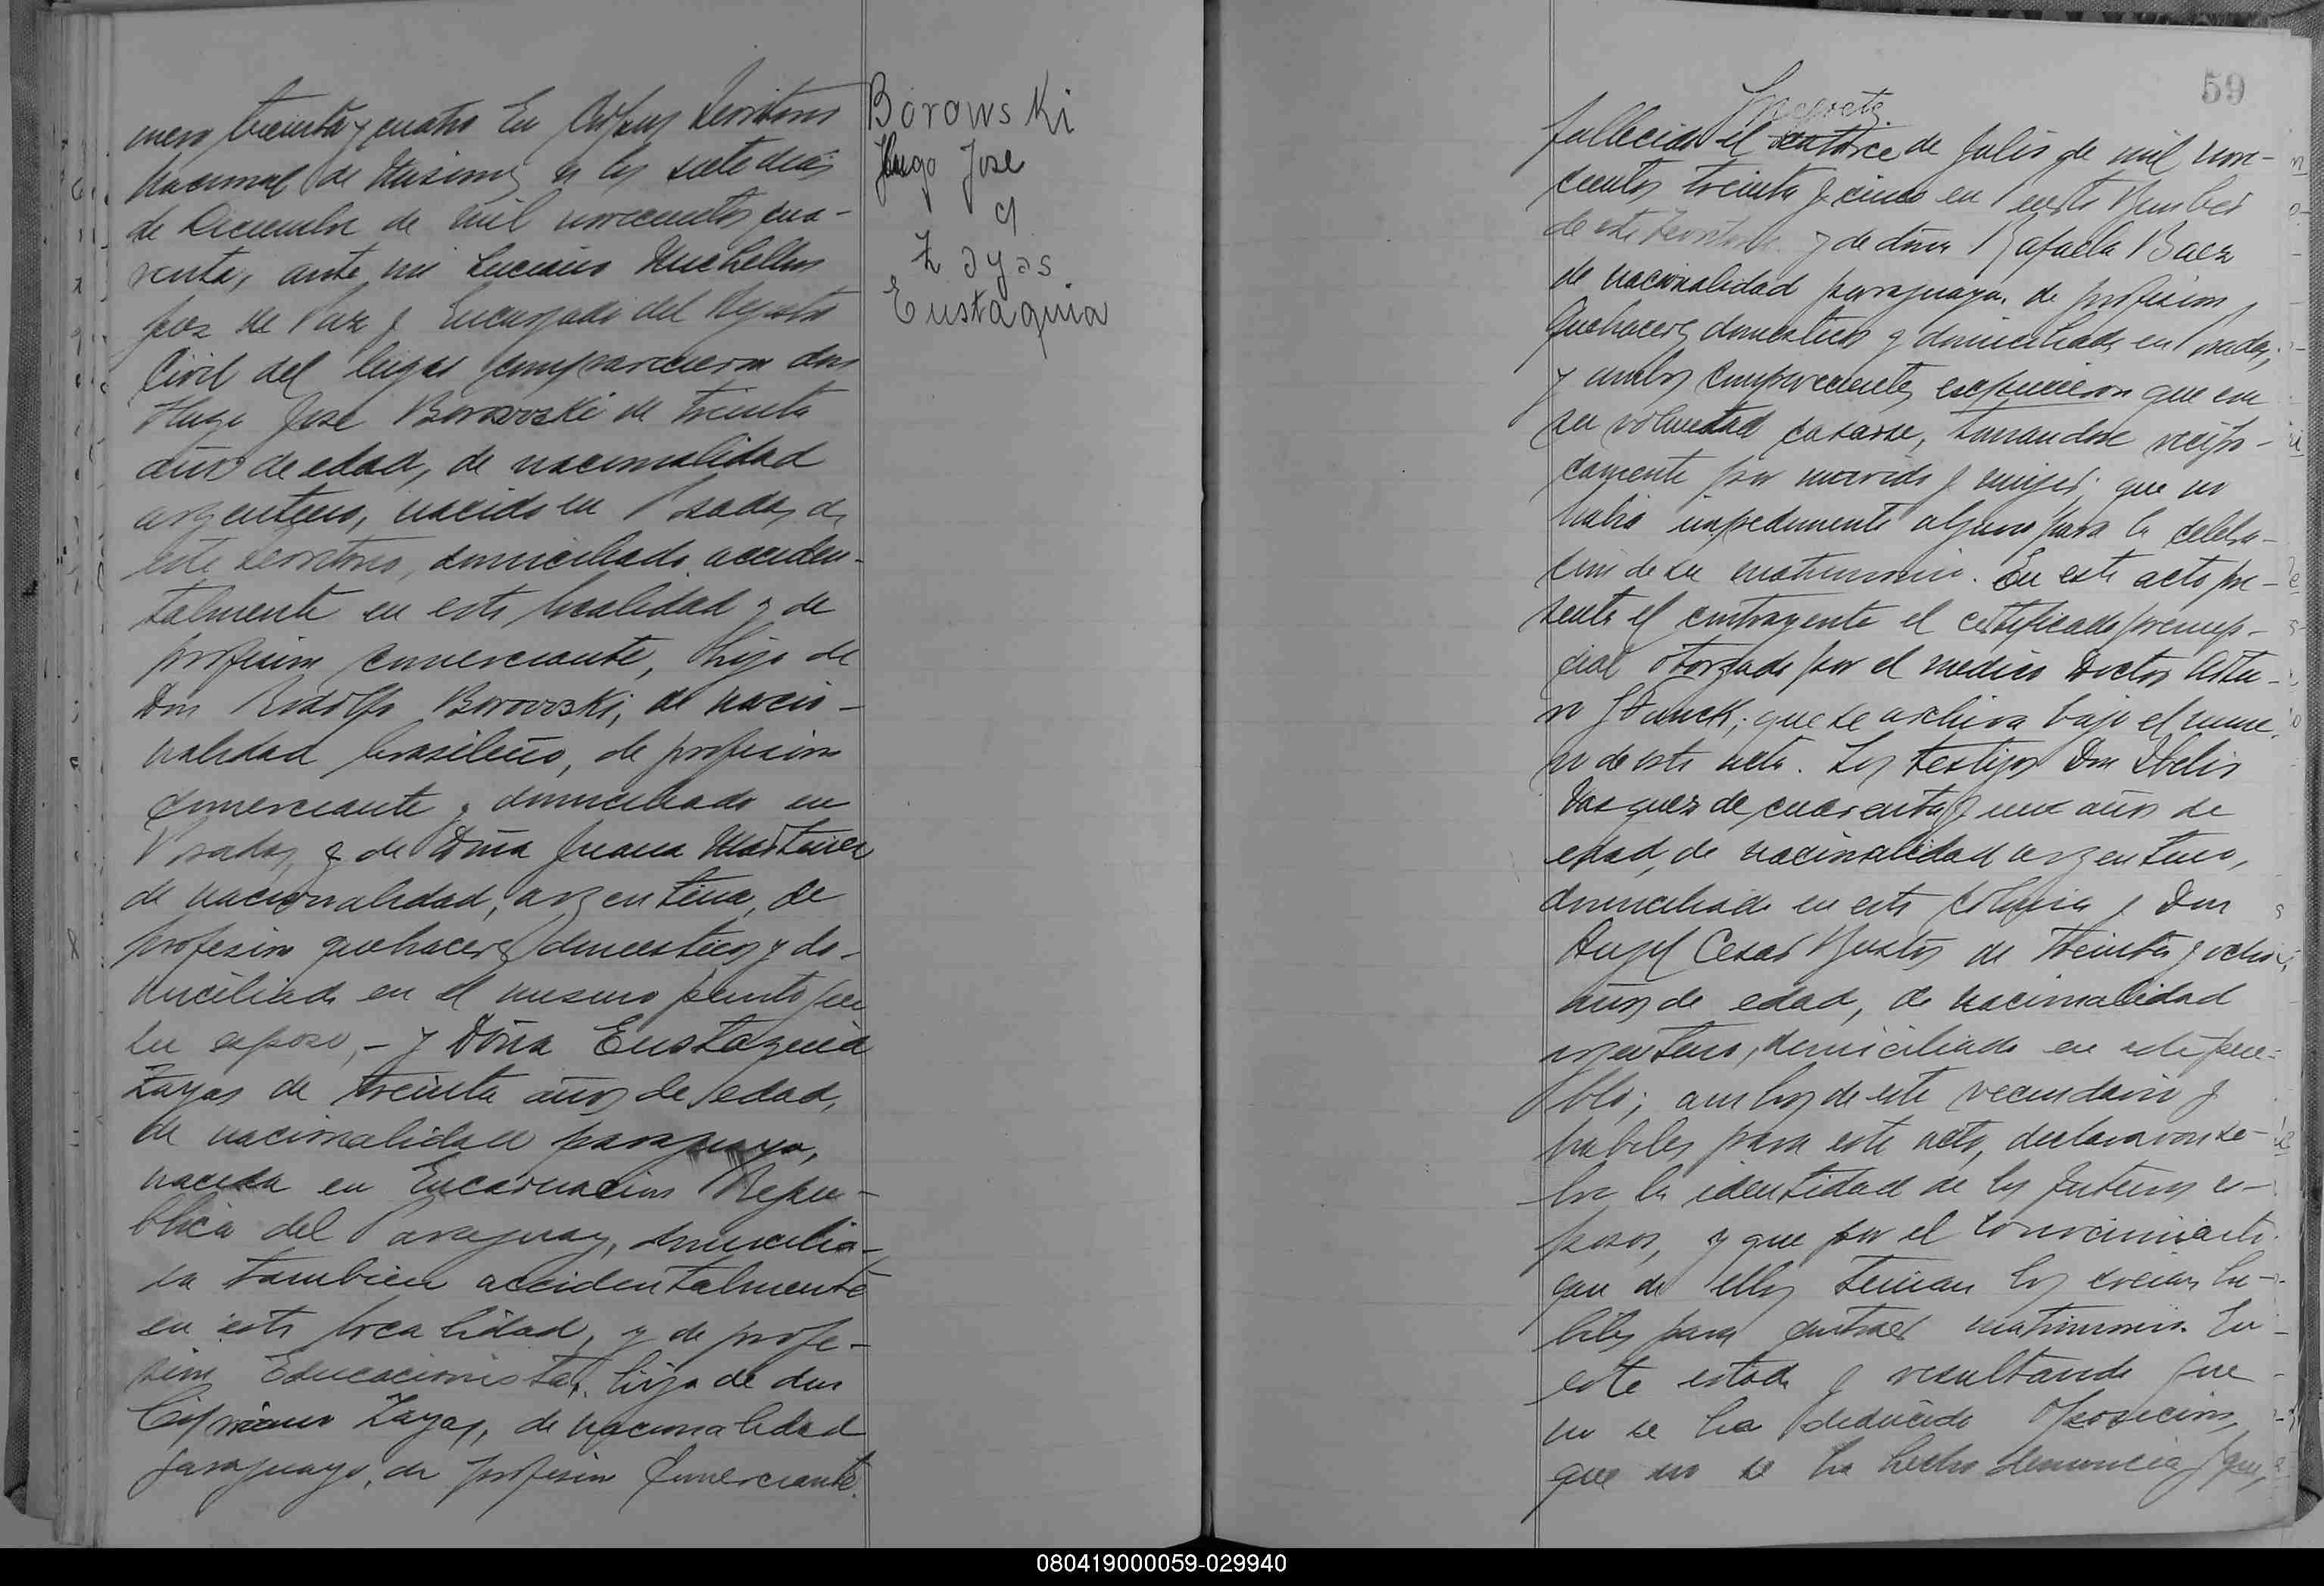 mero treinta y cuatro En Corpus Territorio
Nacional de Misiones a los siete dias
de Diciembre de mil novecientos cua-
renta, ante mi Luciano
Juez de Paz y Encargado del Registro
Civil del lugar comparecieron don
Hugo Jose Borowski de treinta
años de edad, de nacionalidad
argentino, nacido en Posadas de
este territorio, domiciliado acciden-
talmente en esta localidad y de
profesion comerciante, hijo de
Don Rodolfo Borowski, de nacio-
nalidad brasileño, de profesion
comerciante y domiciliado en
Posadas, y de Doña Juana Martinez
de nacionalidad, argentina, de
profesion quehaceres domesticos y do-
miciliada en el mismo punto que
su esposo,- y Doña Eustaquia
Zayas de treinta años de edad,
de nacionalidad paraguaya,
nacida en Encarnacion Repu-
blica del Paraguay, domicilia-
da tambien accidentalmente
en esta localidad, y de profe-
sion Educacionista, hija de don
Cipriano Zayas, de nacionalidad
paraguayo, de profesion Comerciante.
Borowski
Hugo Jose
y
Zayas
Eustaquia
59
fallecido el catorce de Julio de mil nove-
cientos treinta y cinco en
de este territorio y de doña Rafaela Baez
de nacionalidad paraguaya, de profesion
Quehaceres domesticos y domiciliada en Posadas;
y ambos comparecientes expusieron que era
su voluntad casarse, tomandose recipro-
camente por marido y mujer; que no
habia impedimento alguno para la celebra-
cion de su matrimonio. En este acto pre-
senta el contrayente el certificado prenup-
cial otorgado por el medico Doctor Artu-
ro que se archiva bajo el nume-
ro de esta acta. Los testigos Don Obelis
Vasquez de cuarenta y un años de
edad, de nacionalidad argentino,
domiciliado en esta colonia y Don
Angel Cesar Bustos de treinta y ocho
años de edad, de nacionalidad
argentino, domiciliado en este pue-
blo; ambos de este vecindario y
habiles para este acto, declararon so-
bre la identidad de los futuros es-
posos, y que por el conocimiento
que de ellos tenian los creian ha-
biles para contraer matrimonio. En
este estado y resultando que
no se ha deducido oposicion,
que no se ha hecho denuncia y que,
080419000059-029940